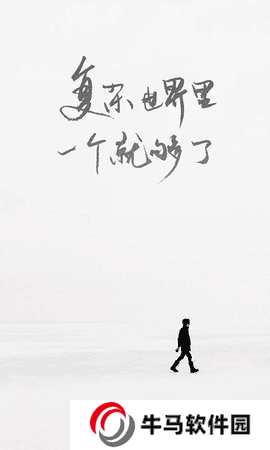 复杂世界里
一个就够了
牛马软件园